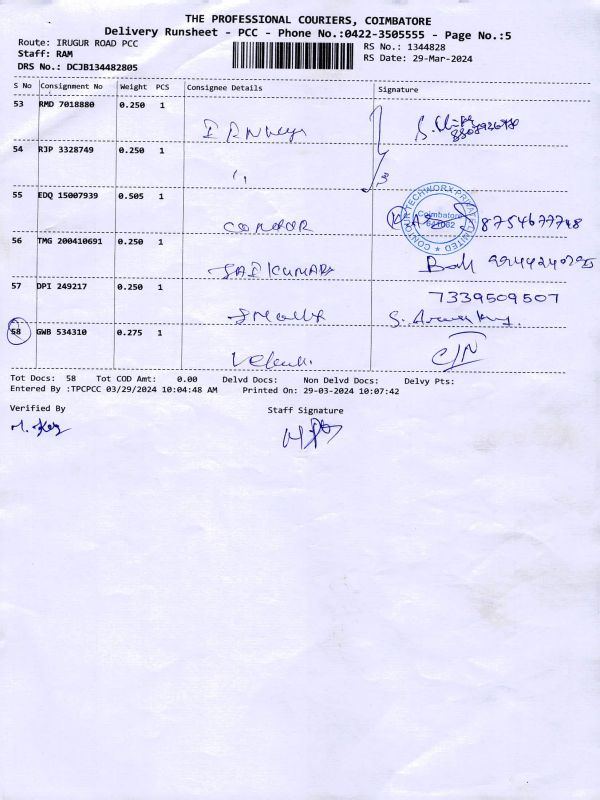 THE PROFESSIONAL COURIERS, COIMBATORE
Delivery Runsheet - PCC - Phone No.:0422-3505555 - Page No.:5
Route: IRUGUR ROAD PCC
RS No.: 1344828
Staff: RAM
RS Date: 29-Mar-2024
DRS No.: DCJB134482805
S No Consignment No Weight PCS Consignee Details Signature
53 RMD 7018880 0.250 1
54 RJP 3328749 0.250 1
55 EDQ 15007939 0.505 1 CONDOR 8754677748
56 TMG 200410691 0.250 1 SAI KUMARA
57 DPI 249217 0.250 1 7339509507
58 GWB 534310 0.275 1
Tot Docs: 58 Tot COD Amt: 0.00 Delvd Docs: Non Delvd Docs: Delvy Pts:
Entered By :TPCPCC 03/29/2024 10:04:48 AM Printed On: 29-03-2024 10:07:42
Verified By Staff Signature